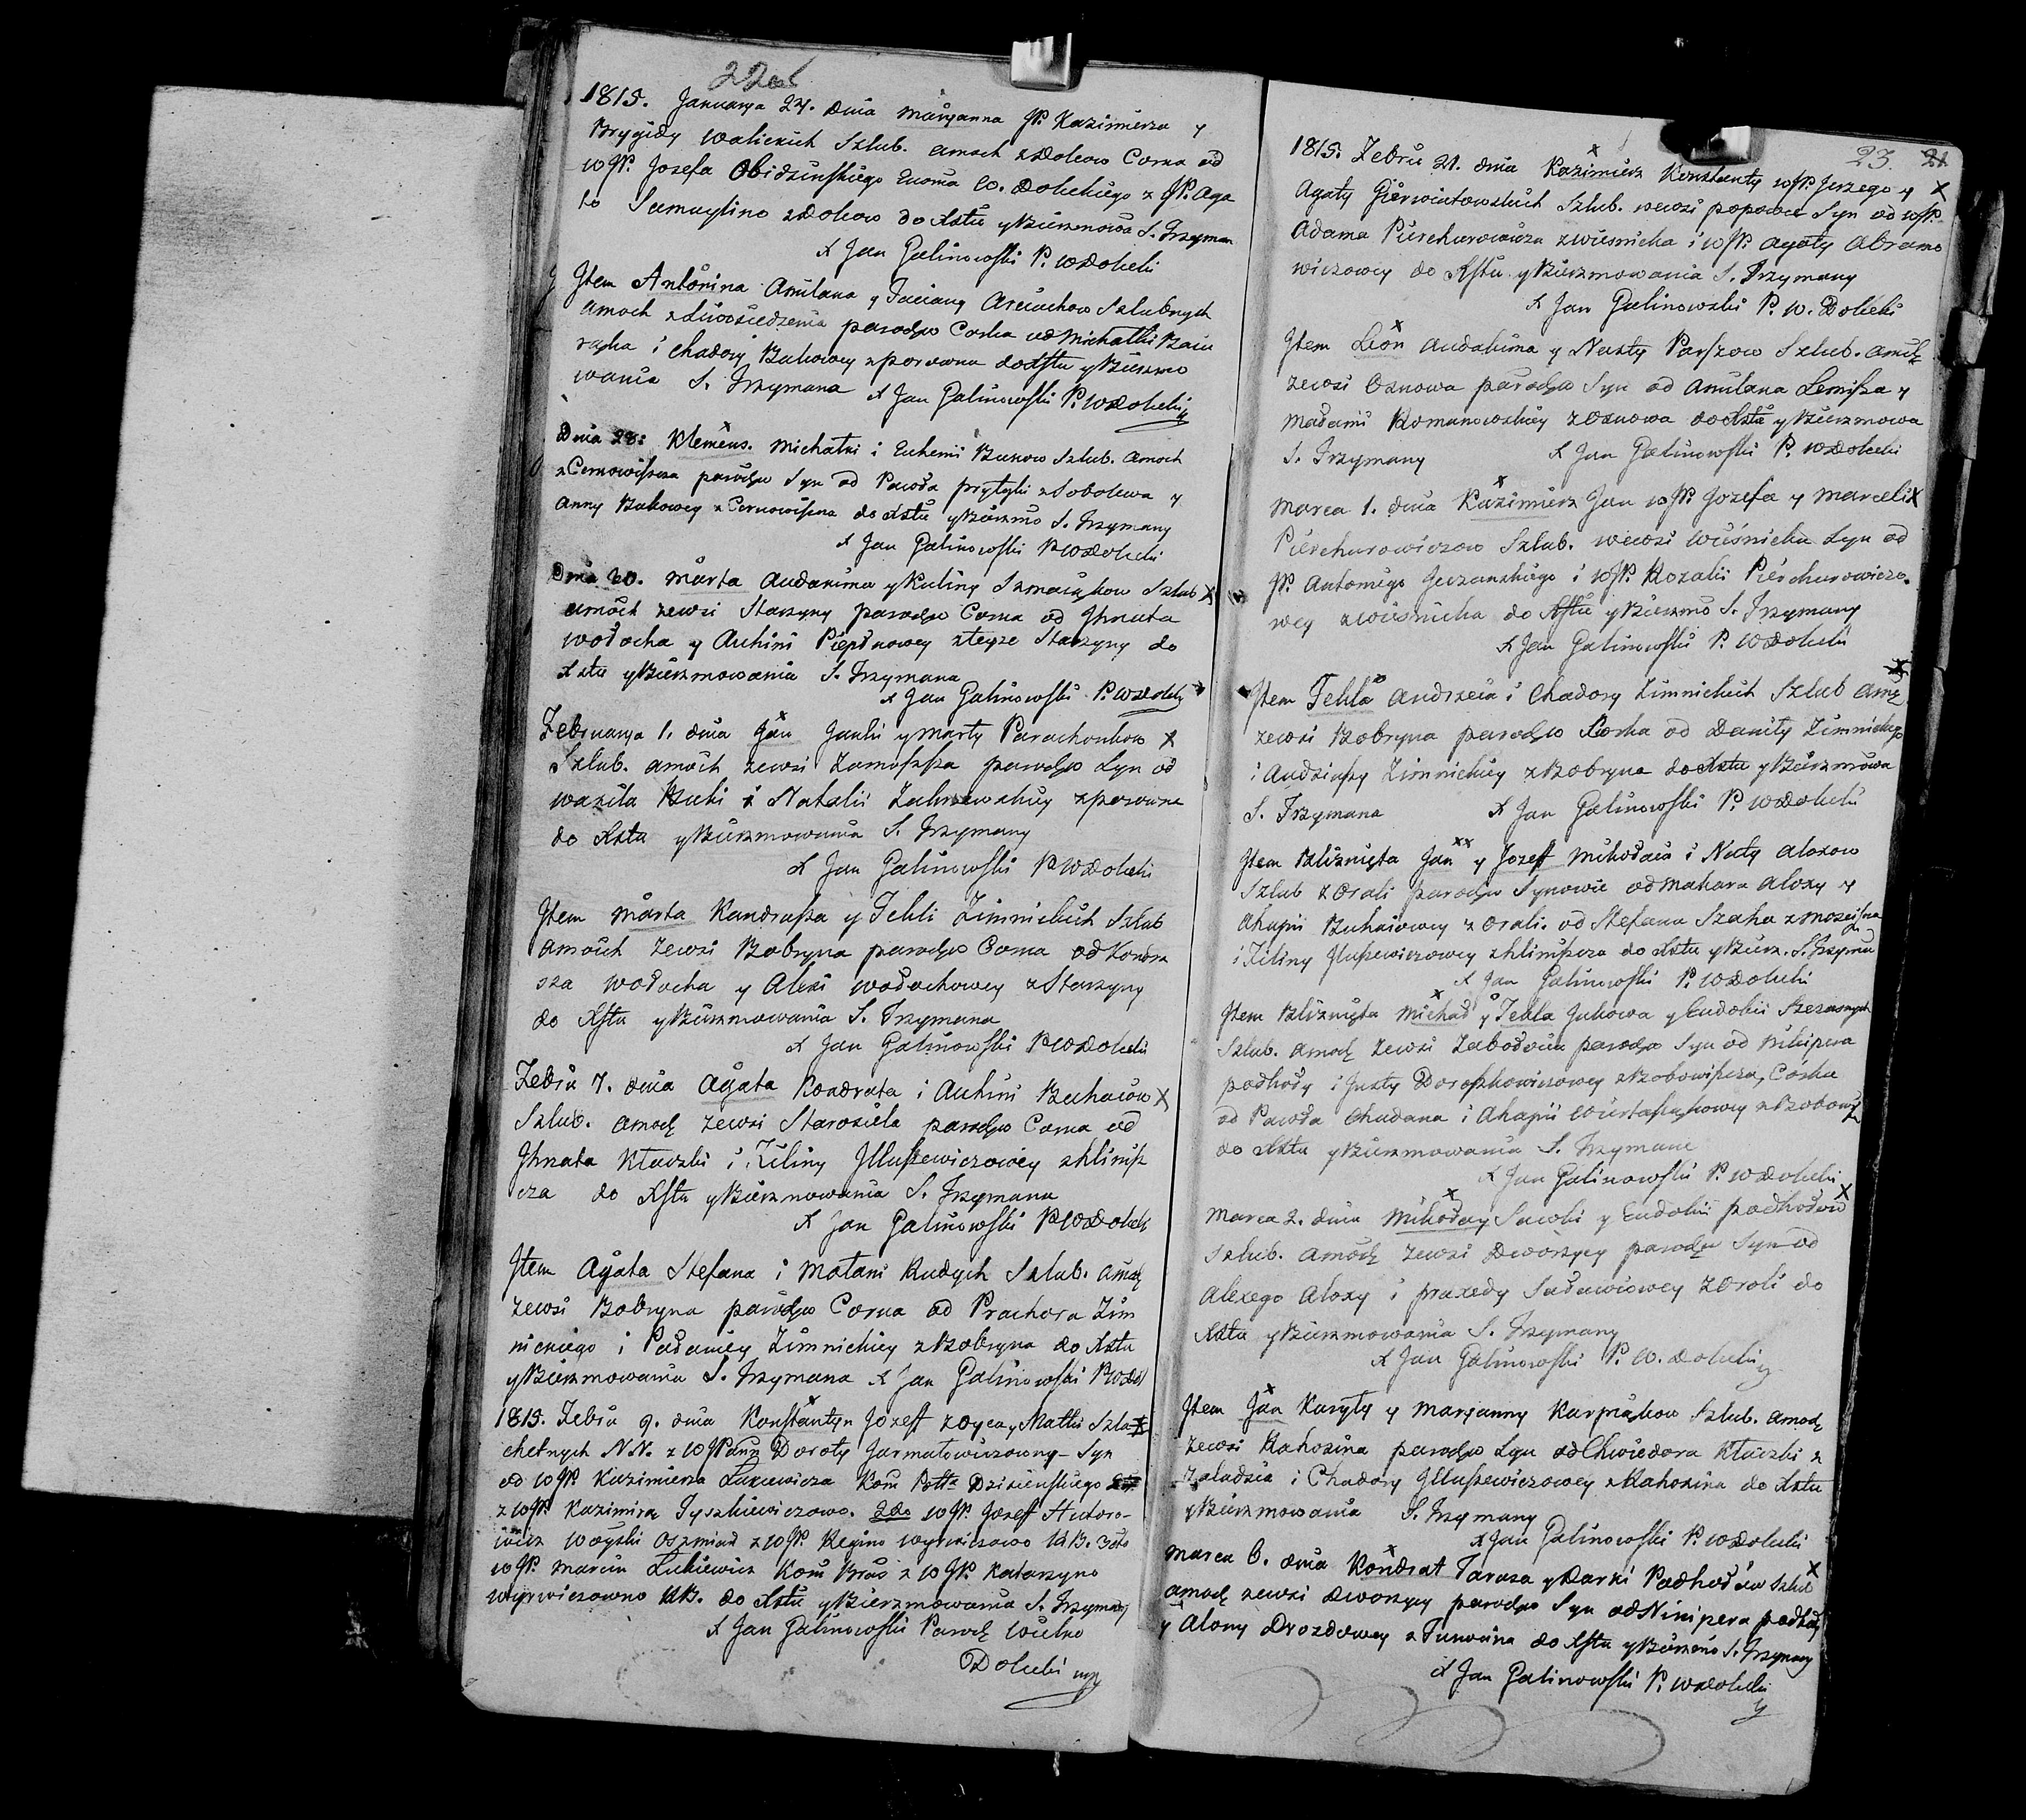 22
1815. Januarya 24. dnia Maryanna JP. Kazimierza y
Brygidy Walickich Szlub. amoch z Dołcow Corna od
WJP. Josefa Obidzinskiego W. Dołckiego z JP. Aga
to Samuylino z Dołcow do Xstu y Bierzmowa S. Trzyman
X Jan Galinowski P. W Dołcki
Jtem Antonina Amilana y Taciany Arciuchow Szlubnych
amoch parochw Corka od Michałki
i Chadory Bukowey z Porowna do Xstu y Bierzmo
wania S. Trzymana X Jan Galinowski P. W Dołcki
Dnia 28. Klemens. Michałki i Euhemii Bukow Szlub. amoch
z Cernowiszcza parochw Syn od Pawła Prytyki z Sobolewa y
Anny Bukowey z Cernowiszcza do Xstu y Bierzmo S. Trzymany
X Jan Galinowski P W Dołcki
Dnia 20. Marta Audakima y Kuliny Szlub X
amoch zewsi Starzyny parochw Corna od Jhnata
Wołocha y Auhini zteyze Starzyny do
Xstu y Bierzmowania S. Trzymana
X Jan Galinowski P. W Dołcki
Februarya 1. dnia Jan Janki y Marty Parachonkow X
Szlub. amoch zewsi Zamoszsza parochw Syn od
Wazila Buki i Natalii z Porowna
do Xstu y Bierzmowania S. Trzymany
X Jan Galinowski P W Dołcki
Jtem Marta Kandrasza y Tekli Zimnickich Szlub
amoich zewsi Bobryna parochw Corna od Kondra
sza Wołocha y Alexi Wołochowey z Starzyny
do Xstu y Bierzmowania S. Trzymana
X Jan Galinowski P W Dołcki
Febru 7. dnia Agata Kondrata i Auhini Buhaiow X
Szlub. amoch zewsi Starosiela parochw Corna od
Jhnata Kłaczki i Xiliny Jlluszewiczowey z Hlinisz
cza do Xstu y Bierzmowania S. Trzymana
X Jan Galinowski P W Dołcki
Jtem Agata Stefana i Małani Rudych Szlub. amoch
zewsi Bobryna parochw Corna od Prachora Zim
nickiego i Zimnickiey z Bobryna do Xstu
y Bierzmowania S. Trzymana X Jan Galinowski P W Doł
1815. Febru 9. dnia Konstantyn Jozeff z oyca y Matki Szla X
chetnych N.N. z WJPann Doroty Jarmałowiczowny Syn
od WJP. Kazimierza Łukiewicza Kom Pttu Dzisienskiego
z WJP. Kazimirą Tyszkiewiczowo. 2do WJP. Jozeff Hutoro-
wicz Woyski Oszmian z WJP. Regino Wyrwiczowo M.B. 3tio
WJP. Marcin Łukiewicz Kom Bras z WJP. Katarzyno
Wyrwiczowno M.B. do Xstu y Bierzmowania S. Trzymany
X Jan Galinowski Paroch Wielko
Dołcki
23. 21
1815. Febru 21. dnia Kazimierz Konstanty WJP. Jerzego y X
Agaty Gierwiatowskich Szlub. wewsi Popowce Syn od WJP.
Adama Pierchurowicza z Wiesnicka i WJP. Agaty Abramo
wiczowey do Xstu y Bierzmowania S. Trzymany
X Jan Galinowski P. W. Dołcki
Jtem Lion Audakima y Nasty Parszow Szlub. amoch
zewsi Osnowa parochw Syn od Amilana Lemisza y
Madami Romanowskiey z Osnowa do Xstu y Bierzmowa
S. Trzymany X Jan Galinowski P. W Dołcki
Marca 1. dnia Kazimierz Jan WJP. Jozefa y Marceli X
Pierchurowiczow Szlub. wewsi Wiśnicku Syn od
JP. Antoniego i WJP. Rozalii Pierchurowiczo
wey z Wisnicka do Xstu y Bierzmo S. Trzymany
X Jan Galinowski P. W Dołcki
Jtem Tekla Andrzeia i Chadory Zimnickich Szlub amoch
zewsi Bobryna parochw Corka od Daniły Zimnickiego
i Audziuszy Zimnickiey z Bobryna do Xstu y Bierzmowa
S. Trzymana X Jan Galinowski P. W Dołcki
Jtem Bliznięta Jan y Jozeff Mikołaia i Nasty Aloxow
Szlub z Orali parochw Synowie od Makara Aloxy y
Ahapii Buhaiowey z Orali. od Stefana Szaha
i Xiliny Jlluszewiczowey z Hliniszcza do Xstu y Bierz. S. Trzyma
X Jan Galinowski P. W Dołcki
Jtem Bliznięta Michał y Tekla Jakowa y Eudokii
Szlub. amoch zewsi parochw Syn od Nikipera
Padhody i Justy Doroszkowiczowey z Bobowiszcza, Corka
od Pawła i Ahapii z Bobow
do Xstu y Bierzmowania S. Trzymane
X Jan Galinowski P. W Dołcki
Marca 2. dnia Mikołay Sawki y Eudokii Padhodow X
Szlub. amoch zewsi Dworzycy parochw Syn od
Alexego Aloxy i Praxedy Sadawiowey z Orali do
Xstu y Bierzmowania S. Trzymany
X Jan Galinowski P. W. Dołcki
Jtem Jan Karyły y Maryanny Karpiąkow Szlub. amoch
zewsi Rahozina parochw Syn od Chwiedora Kłaczki z
Zaladzia i Chadory Jlluszewiczowey z Rahozina do Xstu
y Bierzmowania S. Trzymany
X Jan Galinowski P. W Dołcki
Marca 6. dnia Kondrat Tarasa y Darki Padhodow Szlub X
amoch zewsi Dworzycy parochw Syn od Nikipera Padhody
y Alony Drozdowey z do Xstu y Bierzmo S. Trzymany
X Jan Galinowski P. W Dołcki